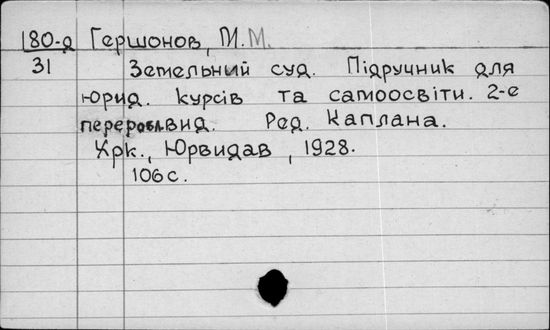 180-д Гершонов, М.М.
31 Земельный суд. Підручник для
юрид. курсів та самоосвіти. 2-е
перероб. вид. Ред. Каплана.
Хрк., Юрвидав, 1928.
106 с.